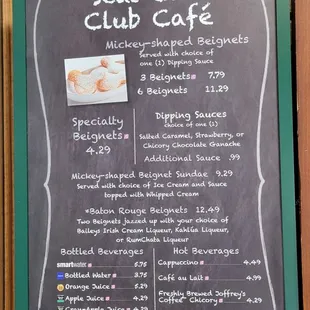 Club Café
Mickey-shaped Beignets
Served with choice of
one (1) Dipping Sauce
3 Beignets 7.79
6 Beignets 11.29
Specialty
Beignets
4.29
Dipping Sauces
choice of one (1)
Salted Caramel, Strawberry, or
Chicory Chocolate Ganache
Additional Sauce .99
Mickey-shaped Beignet Sundae 9.29
Served with choice of Ice Cream and Sauce
topped with Whipped Cream
*Baton Rouge Beignets 12.49
Two Beignets jazzed up with your choice of
Baileys Irish Cream Liqueur, Kahlúa Liqueur,
or RumChata Liqueur
Bottled Beverages
smartwater 5.75
Bottled Water 3.75
Orange Juice 5.29
Apple Juice 4.29
Apple Juice 4.29
Hot Beverages
Cappuccino 4.49
Café au Lait 4.99
Freshly Brewed Joffrey's
Coffee Chicory 4.29